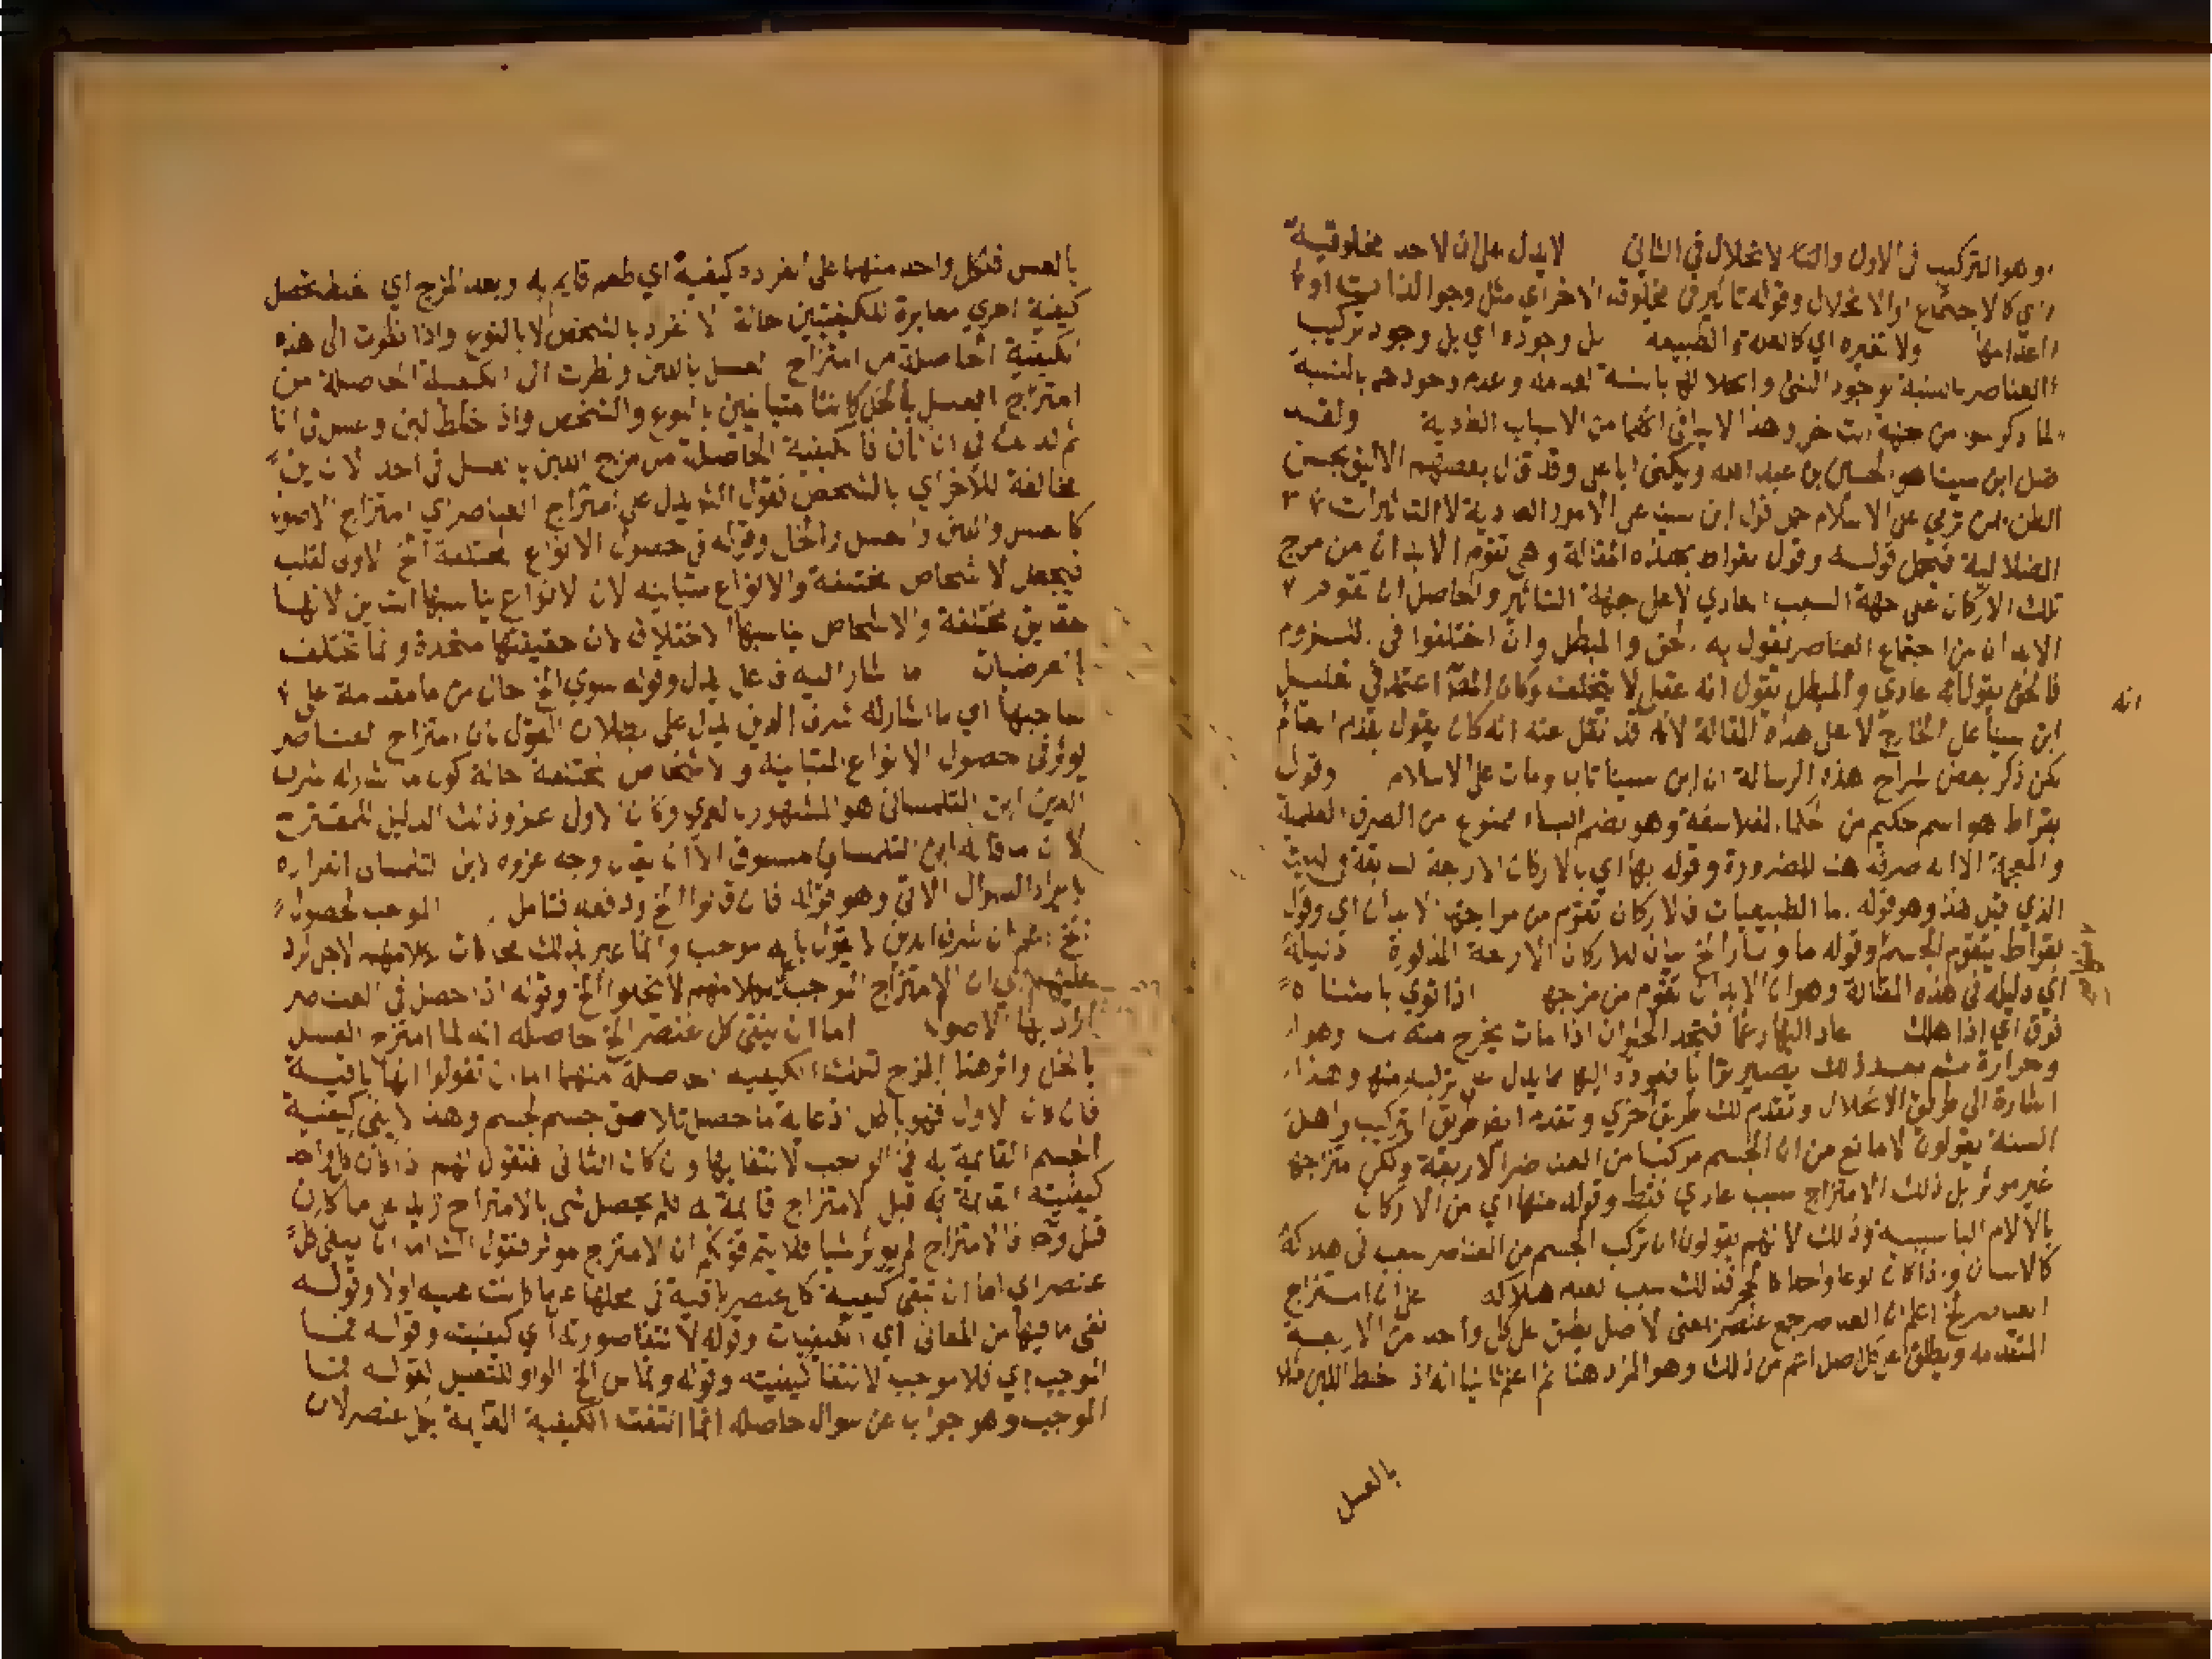 وهو التركيب في الاول والثا لانحلال في الثاني لا يدل على ان لاحد مخلوقية
اي كالاجتماع او الانحلال وقوله تاثير في مخلوقه الاخر اي مثل وجو الذات او
اعدامها ولا تغيره اي كالعلة والطبيعة بل وجوده اي بل وجود تركيب
العناصر بالنسبة لوجود الشئ وانحلالها بالنسبة لعدمه وعدم وجودهم بالنسبة
لما ذكر من جهة وهذا لا ينافي انهما من الاسباب العادية ولقد
ضل ابن سينا هو الحسين بن عبد الله ويكنى ابا علي وقد قال بعضهم الاليق بحسن
الظن بمن تربي على الاسلام حمل قول ابن سينا على الامور العادية لا التاثيرات
الضلالية فيحمل قوله وقول بقراط بهذه المقالة وهي تقوم الابدان من مزج
تلك الاركان على جهة السبب العادي لا على جهة التاثير والحاصل ان تقوم
الابدان من اجتماع العناصر يقول به الحق والمبطل وان اختلفوا في اللزوم
فالحق يقول انه عادي والمبطل يقول انه عقلي لا يتخلف وكان المص اعتمد في تضليل
انه
ابن سينا على الخارج لا على هذه المقالة لانه قد نقل عنه انه كان يقول بقدم العالم
لكن ذكر بعض شراح هذه الرسالة ان ابن سينا تاب ومات على الاسلام وقول
بقراط هو اسم حكيم من حكماء الفلاسفة وهو بضم الباء ممنوع من الصرف للعلمية
والعجمة الا انه صرفه هنا للضرورة وقوله بها اي بالاركان الاربعة السابقة في البيت
الذي قبل هذا وهو قوله اما الطبيعيات فالاركان تقوم من مزاجها الابدان اي وقول
بقراط بتقوم الجسم وقوله ما ونار الخ بيان للاركان الاربعة المذكورة دليله
اي دليله في هذه المقالة وهو ان الابدان تقوم من مزجها اذا ثوي بالمثناة
فوق اي اذا هلك عاد اليها رغما فتجد الحيوان اذا مات يخرج منه ما وهوا
وحرارة ثم بعد ذلك يصير ترابا فعوده اليها مما يدل على تركبه منها وهذا
اشارة الى طريق الانحلال وتقدم لك طريق اخري وتقدم ايضا طريق التركيب واهل
السنة يقولون لا مانع من ان الجسم مركبا من العناصر الاربعة ولكن امتزاجها
غير موثر بل ذلك الامتزاج سبب عادي فقط وقوله منها اي من الاركان
بالالام الباسببية وذلك لانهم يقولون ان تركب الجسم من العناصر سبب في هلاكه
كالانسان واذا كان نوعا واحدا كالحجر فذلك سبب لعدم هلاكه على ان امتزاج
العناصر الخ اعلم ان العناصر جمع عنصر بمعنى الاصل يطلق على كل واحد من الاربعة
المتقدمه ويطلق على كل اصل اعم من ذلك وهو المراد هنا ثم اعلم ثانيا انه اذا خلط اللبن مثلا
بالعسل
بالعسل فلكل واحد منهما على انفراده كيفية اي طعم قايم به وبعد المزج اي خلط تحصل
كيفية اخري مغايرة للكيفيتين حالة الانفراد بالشخص لا بالنوع واذا نظرت الى هذه
الكيفية الحاصلة من امتزاج العسل باللبن ونظرت الى الكيفية الحاصلة من
امتزاج العسل بالخل كانتا متباينين بالنوع والشخص واذا خلط لبن وعسل في انا
ثم لبن في انا ثان فالكيفية الحاصلة من مزج اللبن بالعسل في احد الاناين
مخالفة للاخر اي بالشخص فقول الش يدل على امتزاج العناصر اي امتزاج الاصول
كالعسل واللبن والعسل والخل وقوله في حصول الانواع المختلفة الخ الاولى القلب
فيجعل الاشخاص مختلفة والانواع متباينه لان الانواع يناسبها التباين لانها
حقايق مختلفة والاشخاص يناسبها الاختلاف لان حقيقتها متحدة وانما تختلف
بالعرضيات ما اشار اليه فاعل يدل وقوله سوي الخ حال من ما مقدمة على
صاحبها اي ما اشار له شرف الدين يدل على بطلان القول بان امتزاج العناصر
يوثر في حصول الانواع المتباينه والاشخاص المختلفة حالة كون ما اشار له شرف
الدين ابن التلمساني هو المشهور بالفهري وكان الاول عزو ذلك الدليل للمقترح
لان ما قاله ابن التلمساني مسبوق الا ان يقال وجه عزوه لابن التلمساني انفراده
بايراد السوال الاتي وهو قوله فان قالوا الخ ودفعه فتامل الموجب لحصول
الخ اعلم ان شرف الدين لا يقول بانه موجب وانما عبر بذلك محاكات لكلامهم لاجل الرد
عليهم اي ان الامتزاج الموجب بكلامهم لا يخلوا الخ وقوله اذا حصل في العناصر
اراد بها الاصول اما ان يبقى كل عنصر الخ حاصله انه لما امتزج العسل
بالخل واثر هذا المزج لتلك الكيفية الحاصلة منهما اما ان تقولوا انها باقية
فان كان الاول فهو باطل اذ غاية ما حصل تلاصق جسم لجسم وهذا لا ينفي كيفية
الجسم القايمة به فما الموجب لانتفايها وان كان الثاني فنقول لهم اذا كان كل واحد
كيفيته القايمة به قبل الامتزاج قايمة به فلم يحصل شي بالامتزاج زايد على ما كان
قبل وح فالامتزاج لم يوثر شيا فلا يتم قولكم ان الامتزاج موثر فقول الش اما ان يبقى كل
عنصر اي اما ان تبقى كيفية كل عنصر باقية في محلها على ما كانت عليه اولا وقوله
نفى ما فيها من المعاني اي الكيفيات وقوله لانتفا صورته اي كيفيته وقوله فما
الموجب اي فلا موجب لانتفا كيفيته وقوله وتماس الخ الواو للتعليل لقوله فما
الموجب وهو جواب عن سوال حاصله انما انتفت الكيفية القايمة بكل عنصر لان